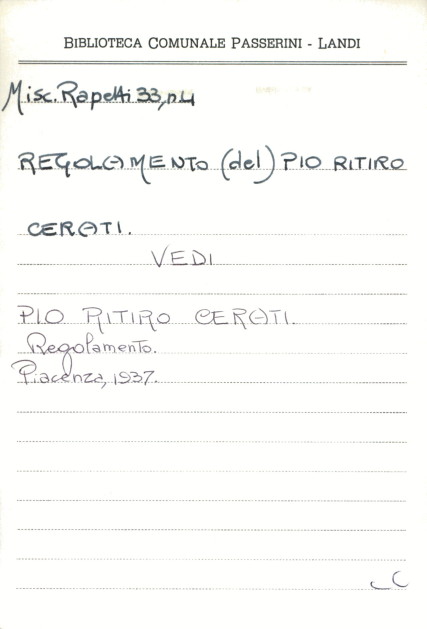 BIBLIOTECA COMUNALE PASSERINI - LANDI
Misc. Rapetti 33, n.4
REGOLAMENTO (del) PIO RITIRO
CERATI.
VEDI
PIO RITIRO CERATI.
Regolamento.
Piacenza, 1937.